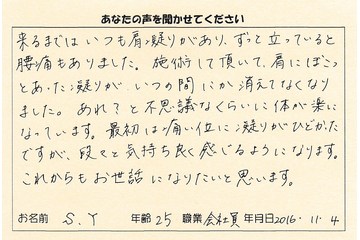 あなたの声を聞かせてください
来るまではいつも肩っ凝りがあり、ずっと立っていると
腰痛もありました。施術して頂いて、肩にぼこっ
とあった凝りが、いつの間にか消えてなくなり
ました。あれ?と不思議なくらいに体が楽に
なっています。最初は痛い位に凝りがひどかった
ですが、段々と気持ち良く感じるようになります。
これからもお世話になりたいと思います。
お名前 S.Y 年齢 25 職業 会社員 年月日 2016.11.4